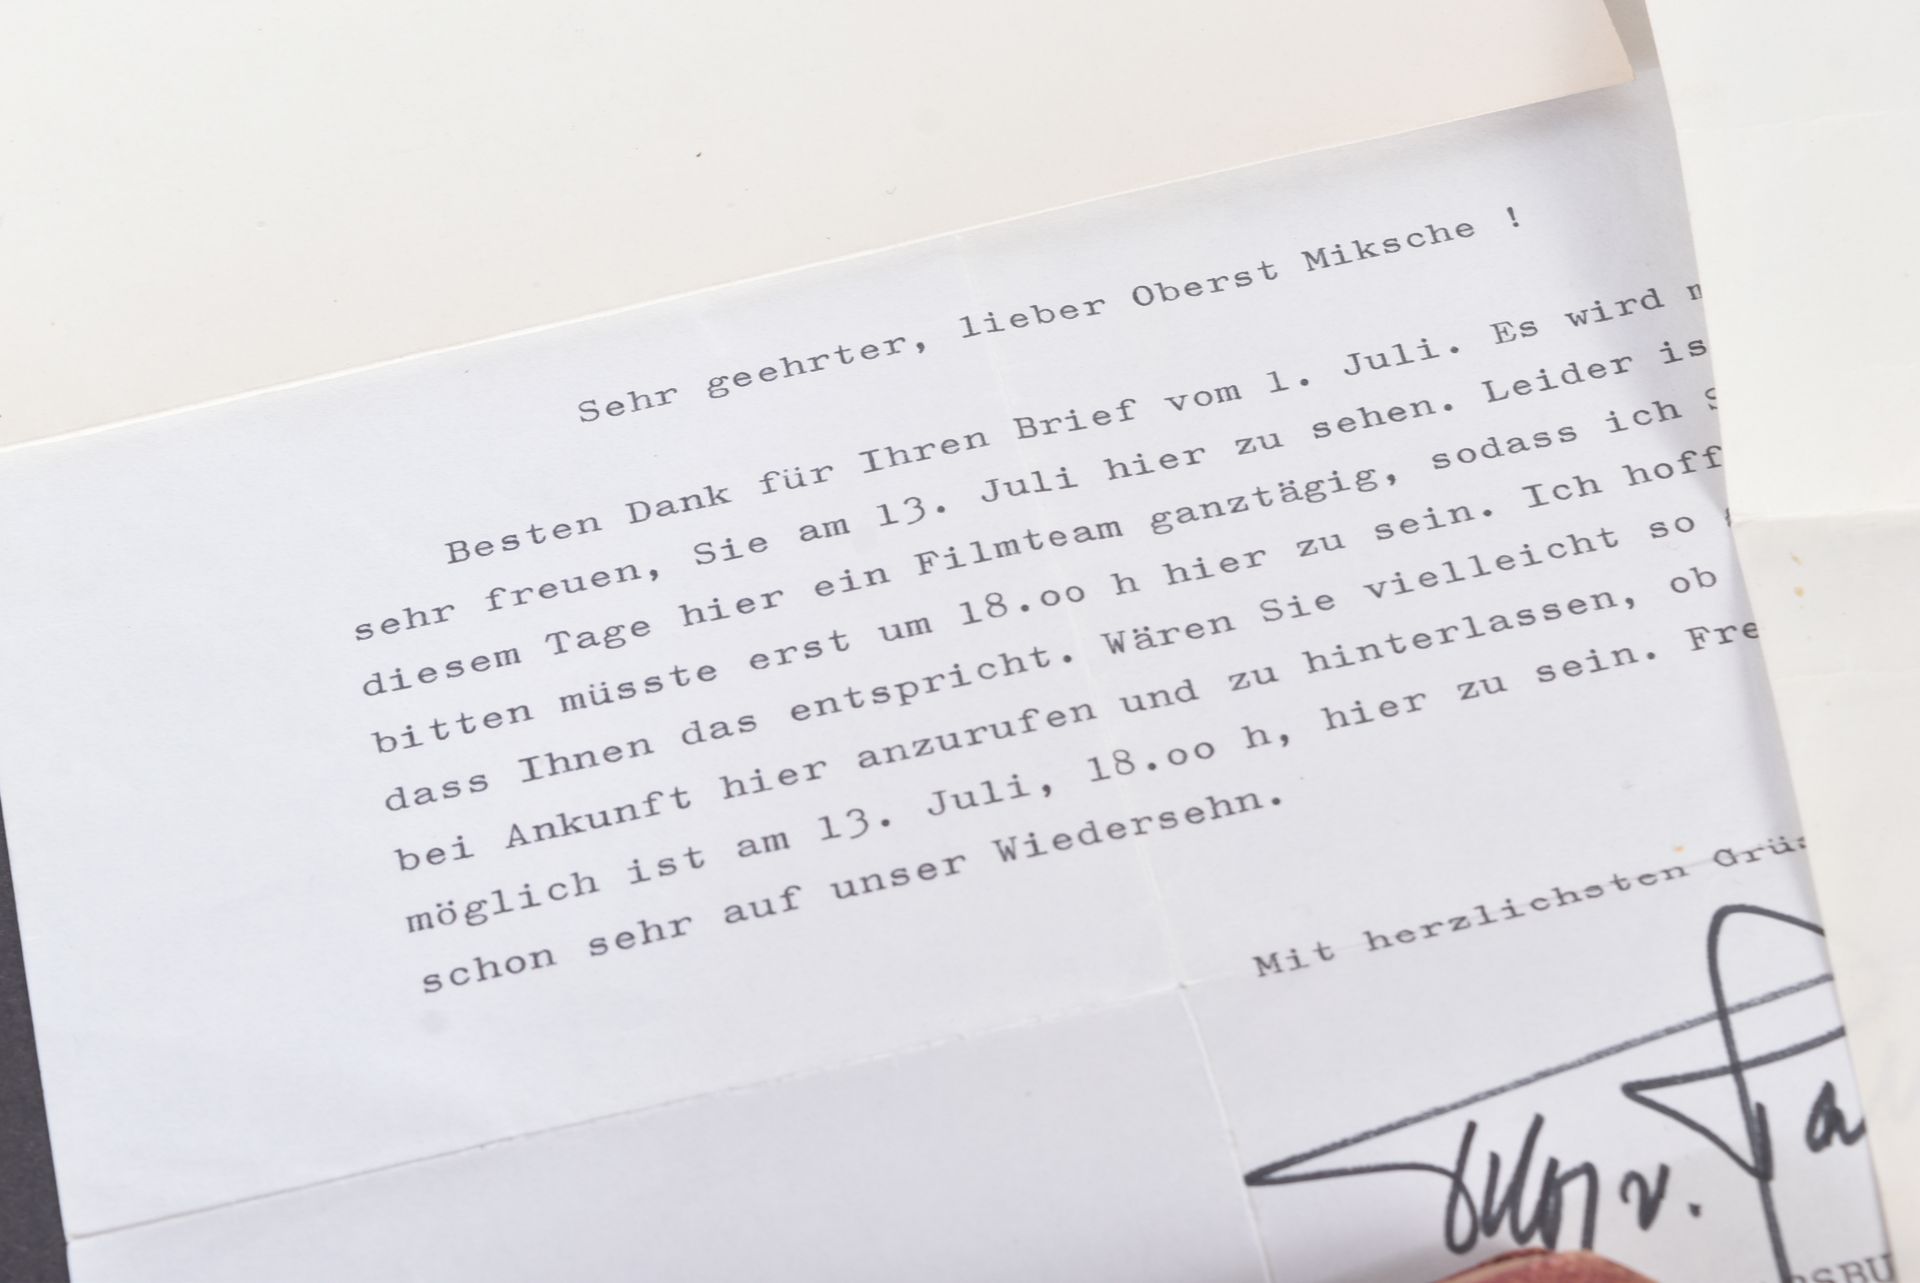 Sehr geehrter, lieber Oberst Miksche !
Besten Dank für Ihren Brief vom 1. Juli. Es wird
sehr freuen, Sie am 13. Juli hier zu sehen. Leider is
diesem Tage hier ein Filmteam ganztägig, sodass ich S
bitten müsste erst um 18.oo h hier zu sein. Ich hoff
dass Ihnen das entspricht. Wären Sie vielleicht so
bei Ankunft hier anzurufen und zu hinterlassen, ob
möglich ist am 13. Juli, 18.oo h, hier zu sein. Fre
schon sehr auf unser Wiedersehn.
Mit herzlichsten Grüs
v.
SBU